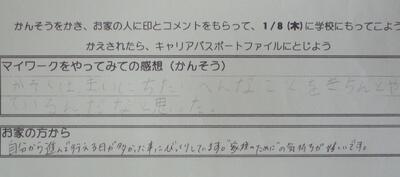 かんそうをかき、お家の人に印とコメントをもらって、1/8(木)に学校にもってこよう
かえされたら、キャリアパスポートファイルにとじよう
マイワークをやってみての感想(かんそう)
かぞくは、まいにちたいへんなことをきちんとや
っているんだなと思った。
お家の方から
自分から進んで行える日が多かった事にびっくりしています。"家族のために"の気持ちが嬉しいです。